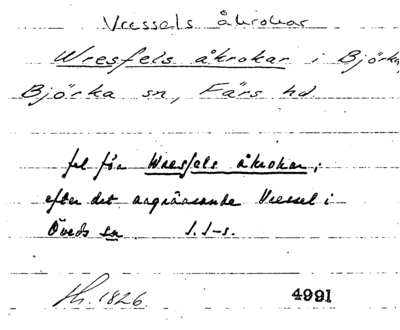 Vressels åkrokar
Wresfels åkrokar i Björka,
Björka sn, Färs hd.
fel för Wresfels åkrokar;
efter det angränsande Vressel i
Öveds sn J.J-s.
Th. 1826. 4991